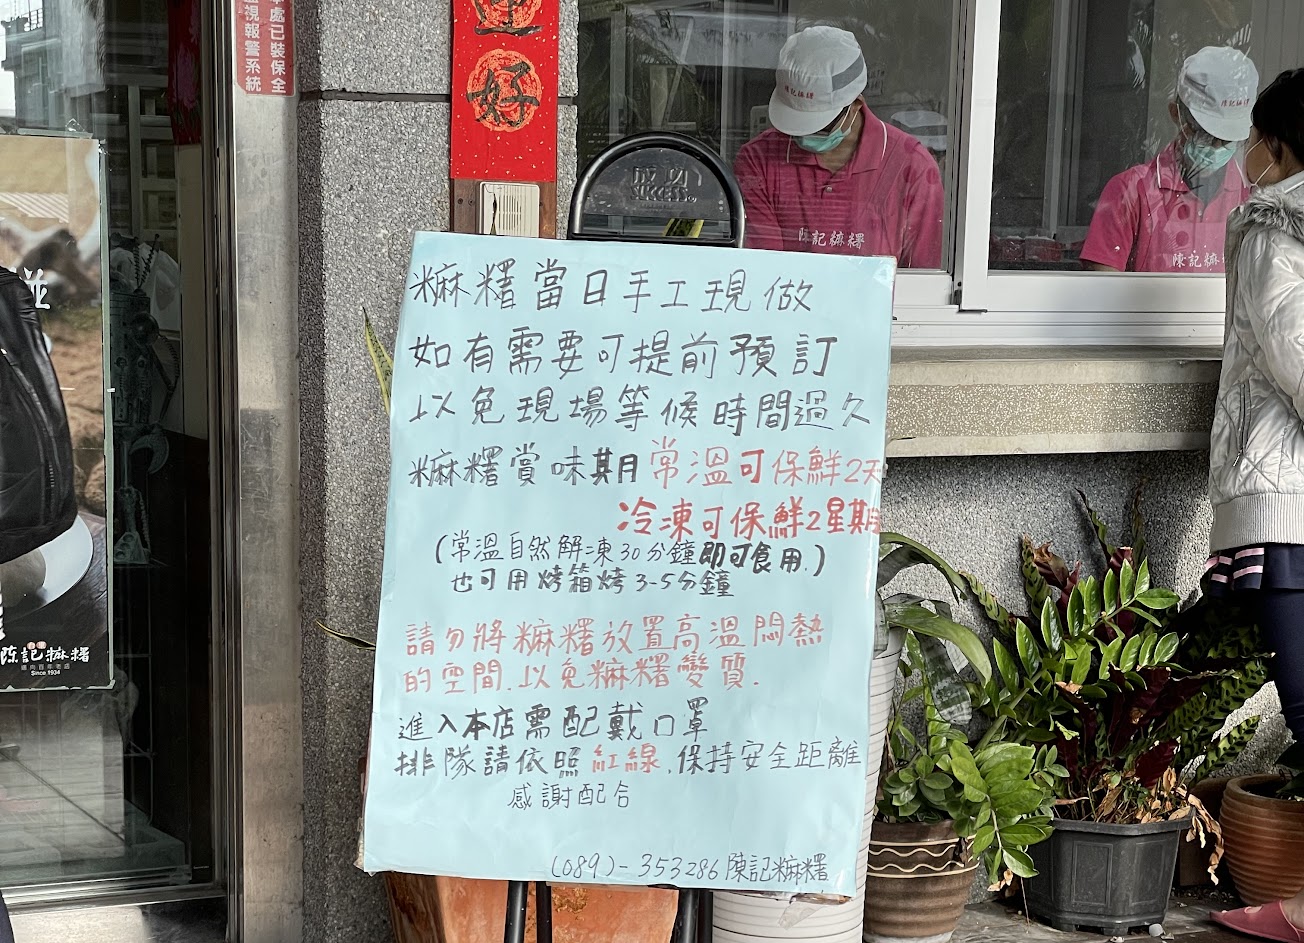 本處已裝保全
監視報警系統
運
好
成功
SUCCESS
陳記麻糬
陳記麻糬
陳記麻糬
陳記麻
並
麻糬當日手工現做
如有需要可提前預訂
以免現場等候時間過久
麻糬賞味期 常溫可保鮮2天
冷凍可保鮮2星期
(常溫自然解凍30分鐘即可食用.)
也可用烤箱烤3-5分鐘
請勿將麻糬放置高溫悶熱
的空間.以免麻糬變質.
進入本店需配戴口罩
排隊請依照紅線.保持安全距離
感謝配合
(089)-353286陳記麻糬
陳記麻糬
邁向百年老店
Since 1934